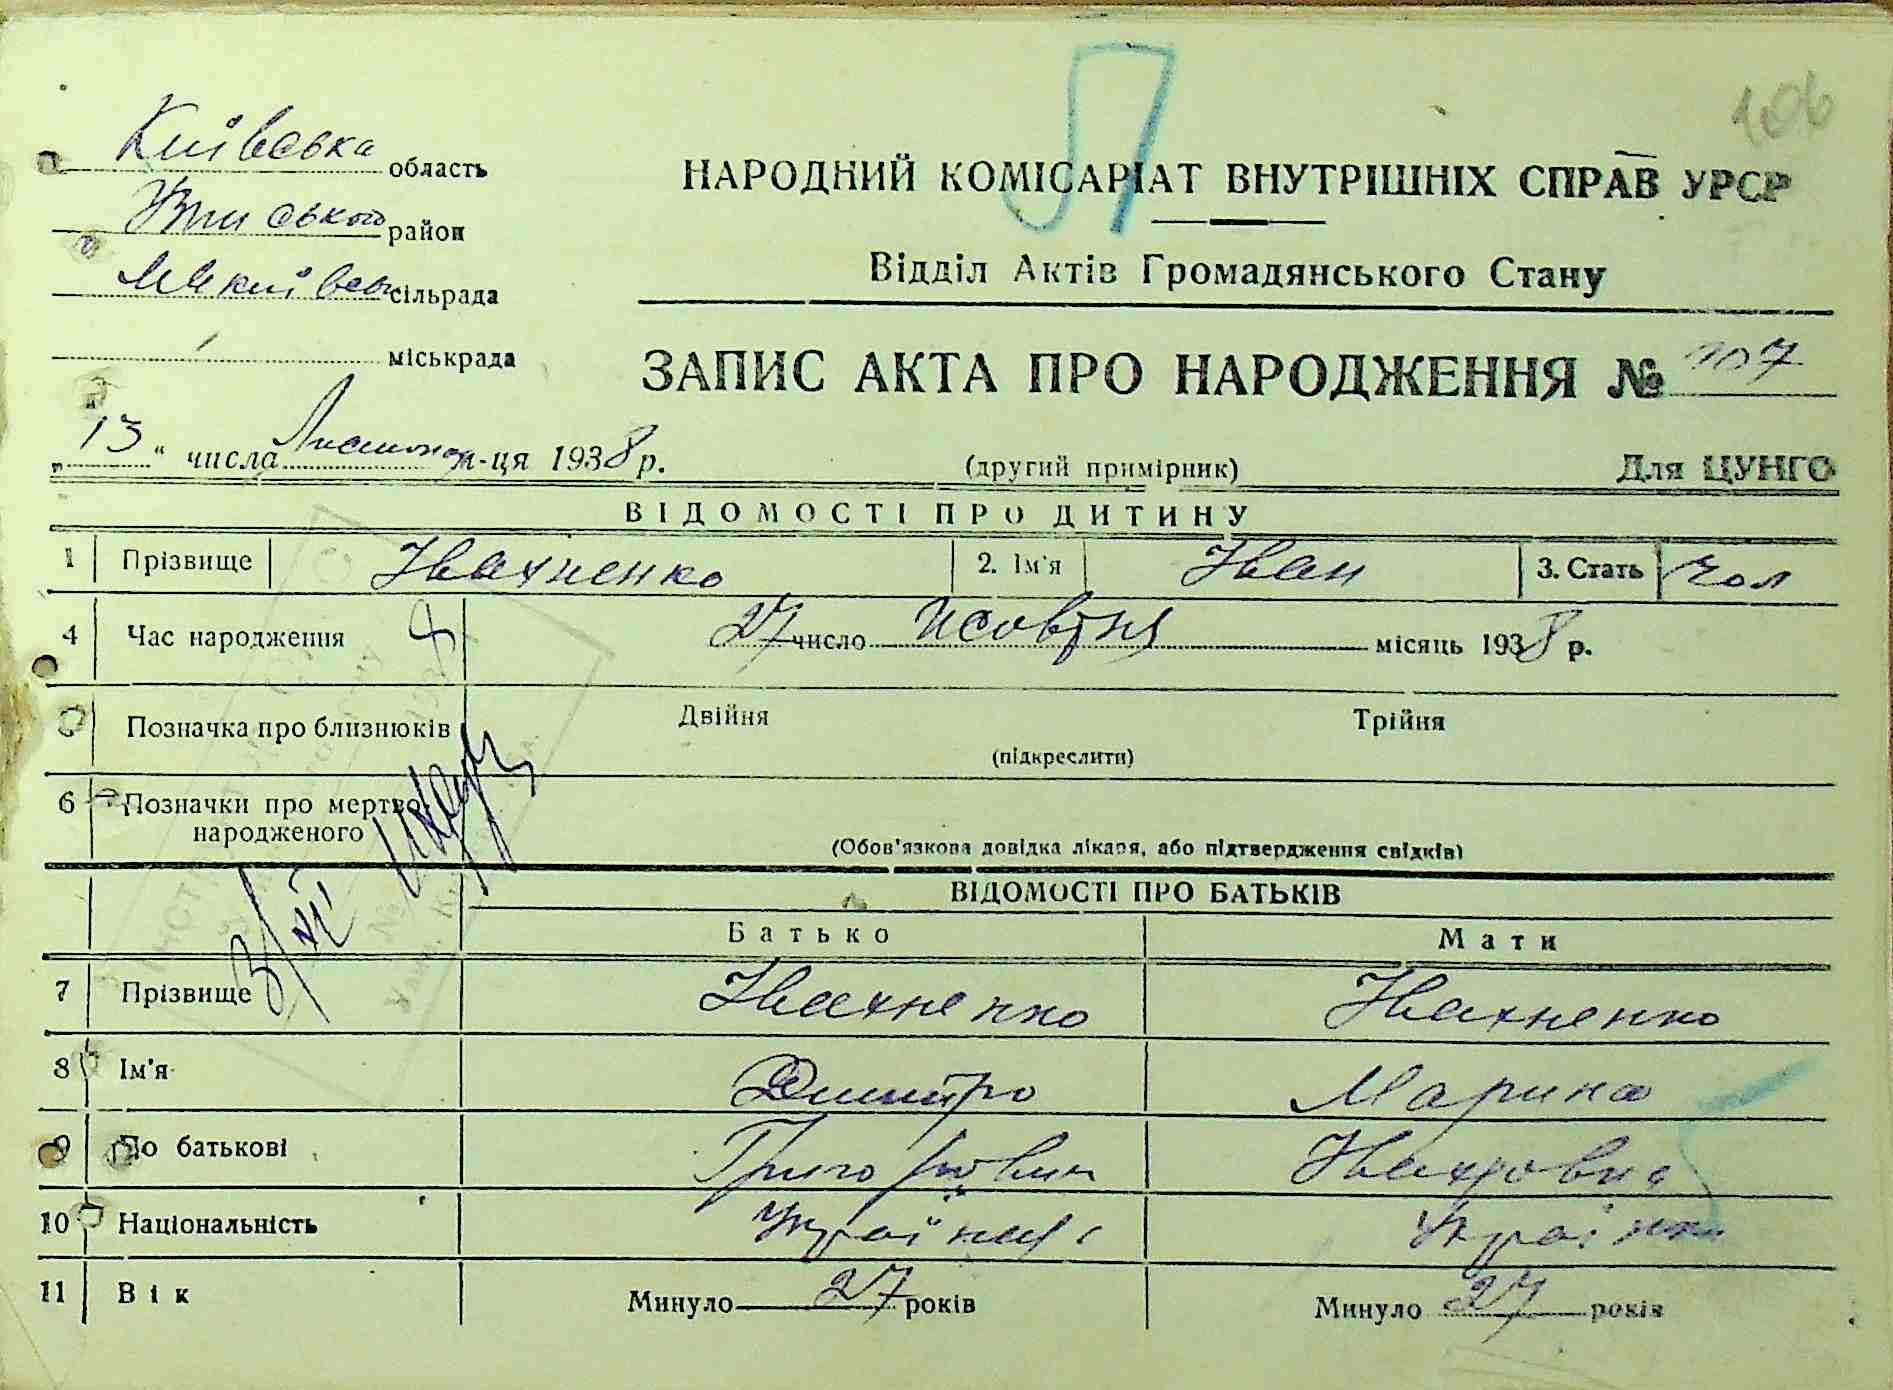 106
Київська область
район
сільрада
міськрада
НАРОДНИЙ КОМІСАРІАТ ВНУТРІШНІХ СПРАВ УРСР
Відділ Актів Громадянського Стану
ЗАПИС АКТА ПРО НАРОДЖЕННЯ № 107
„13“ числа Листопад м-ця 1938 р.
(другий примірник)
Для ЦУНГО
ВІДОМОСТІ ПРО ДИТИНУ
1 Прізвище Івахненко 2. Ім'я Іван 3. Стать чол
4 Час народження 27 число Жовтня місяць 1938 р.
Позначка про близнюків Двійня Трійня
(підкреслити)
6 Позначки про мертво-
народженого
(Обов'язкова довідка лікаря, або підтвердження свідків)
ВІДОМОСТІ ПРО БАТЬКІВ
Батько Мати
7 Прізвище Івахненко Івахненко
8 Ім'я Дмитро Марина
9 По батькові Григорович
10 Національність Українец Українка
11 Вік Минуло 27 років Минуло 27 років